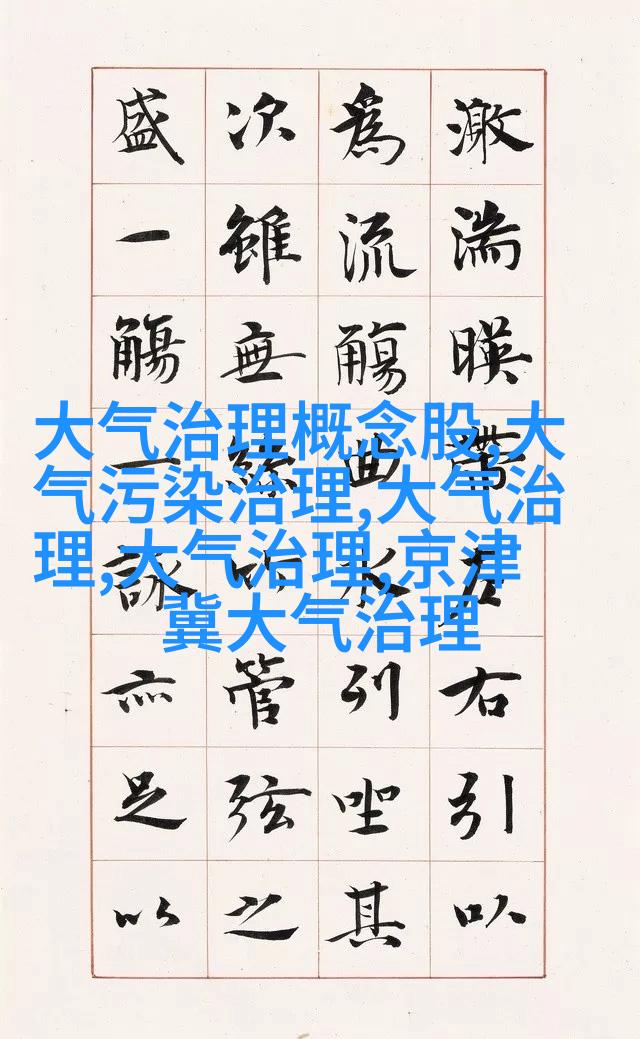 激湍暎帶左右引以
為流觴曲水列坐其
次雖無絲竹管弦之
盛一觴一詠亦足以
大气治理概念股,大
气污染治理,大气治
理,大气治理,京津
冀大气治理